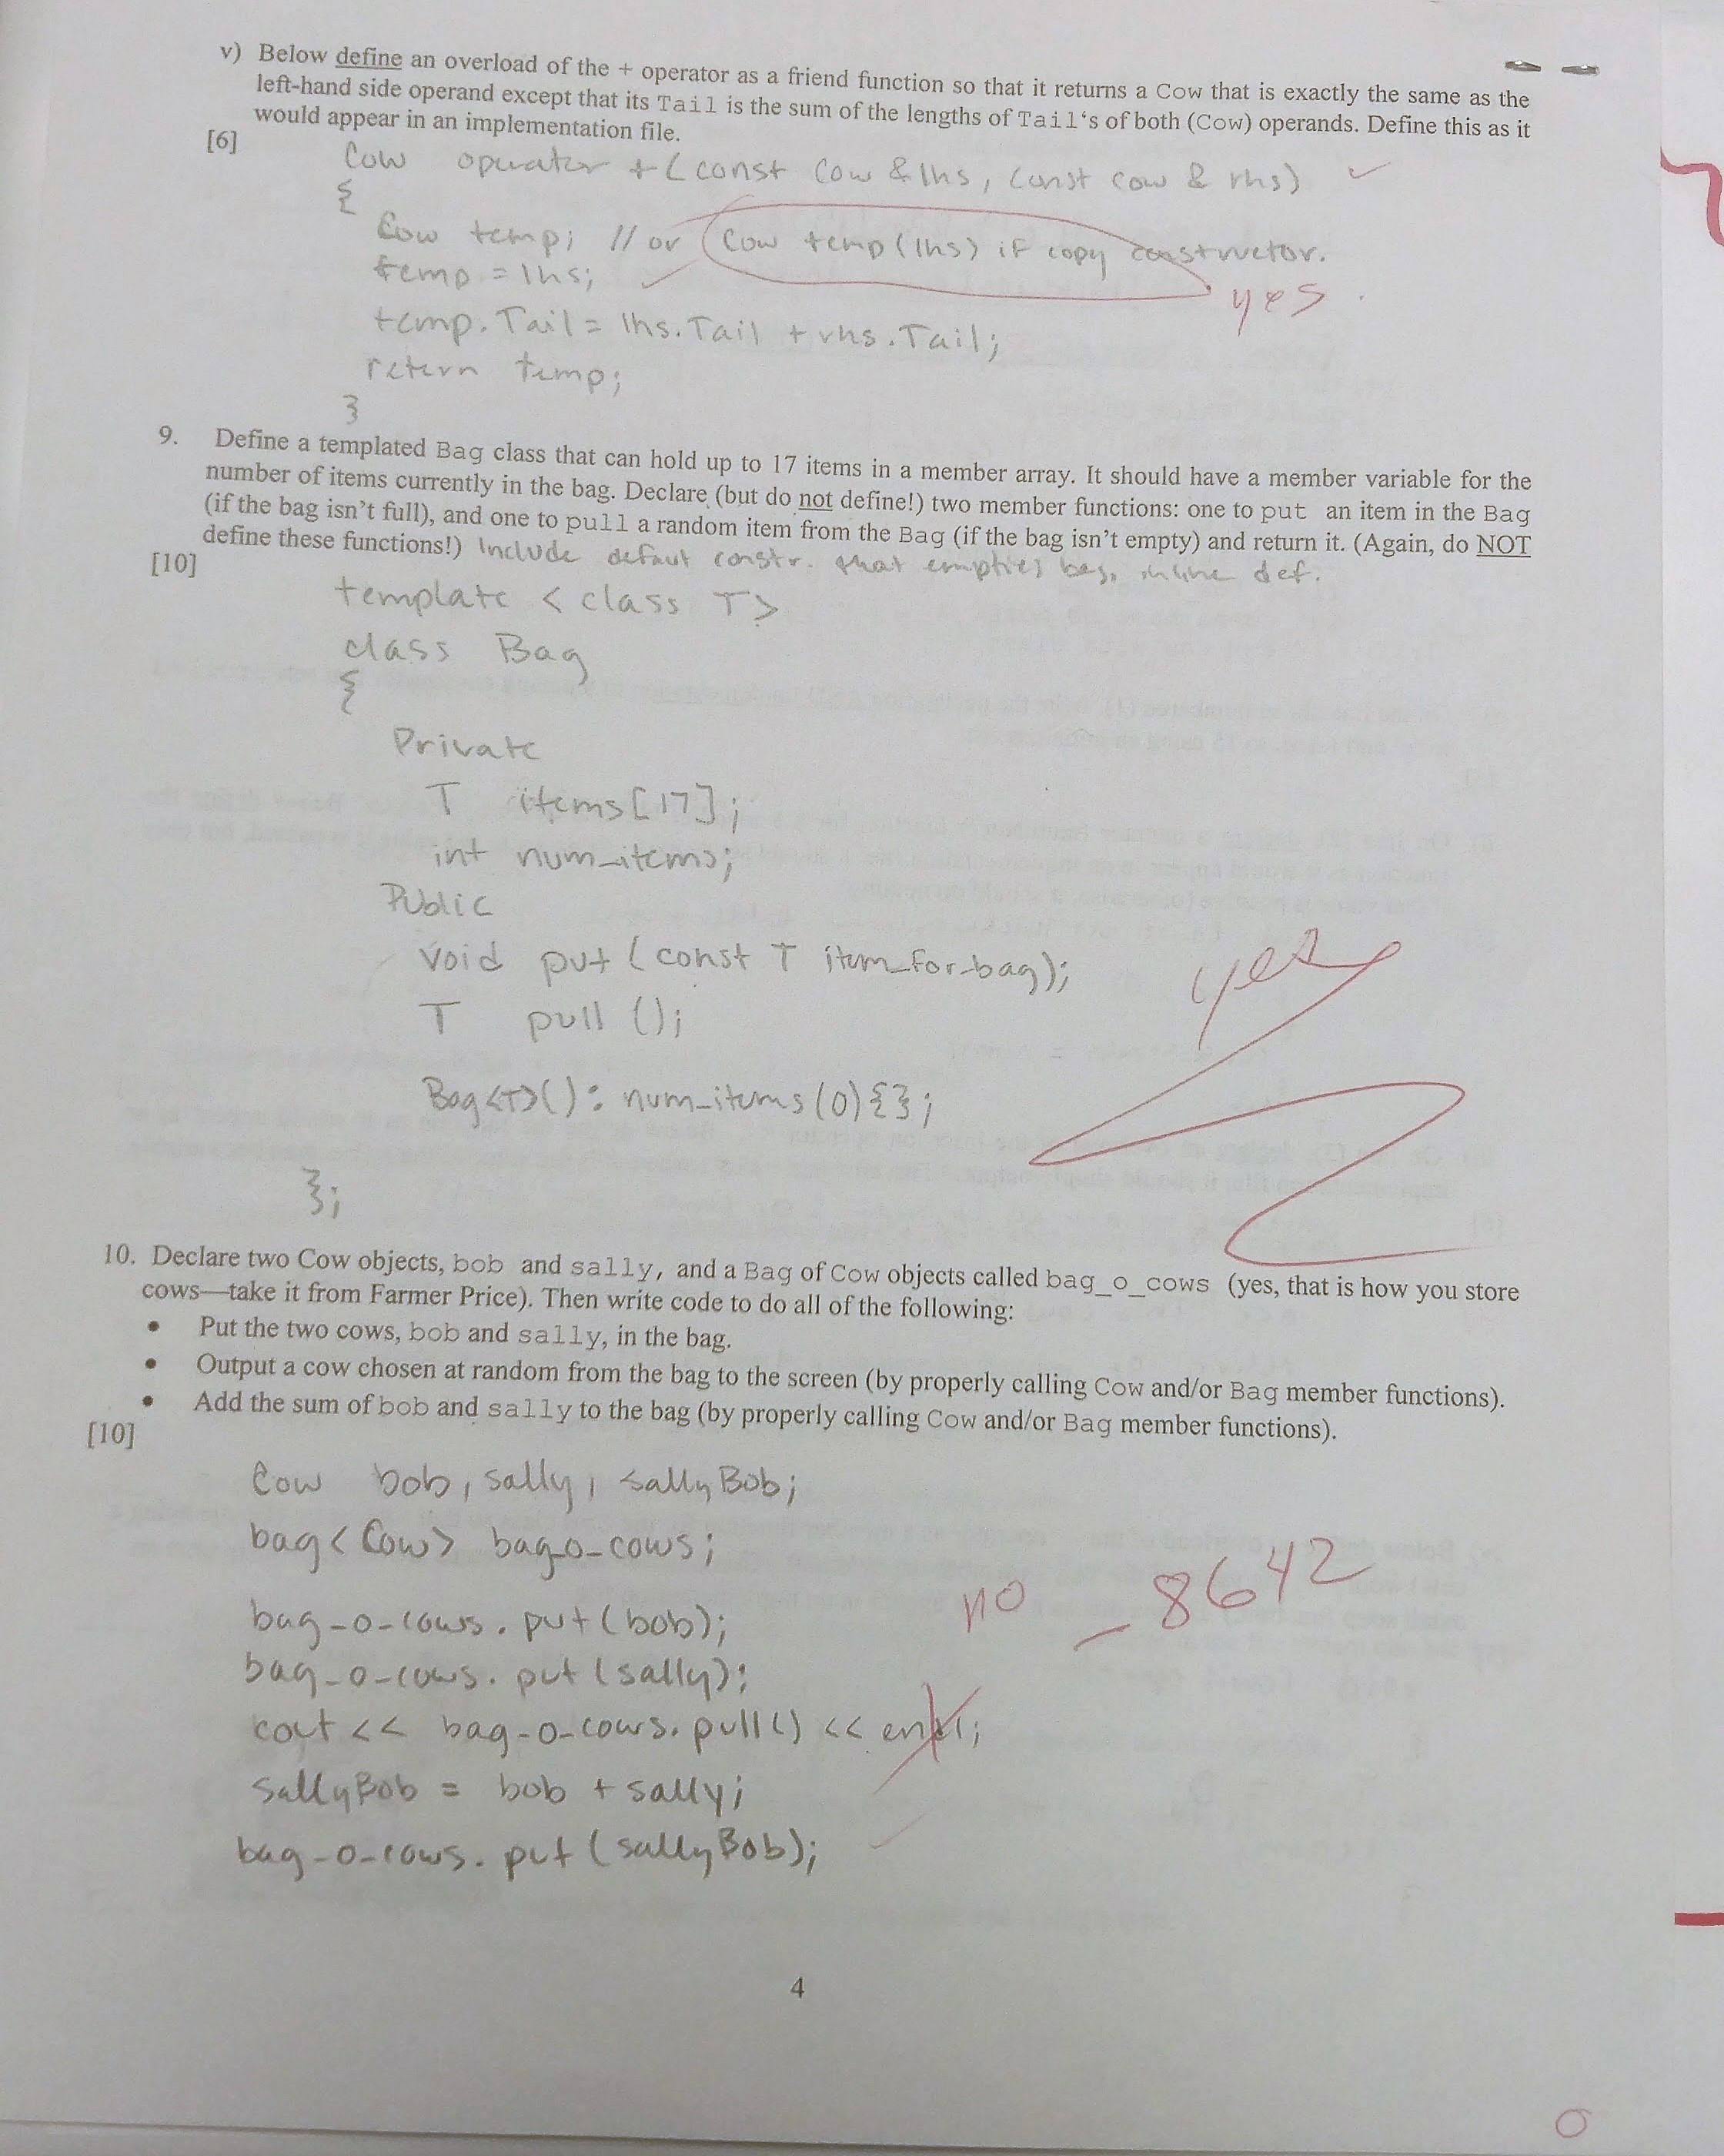 v) Below define an overload of the + operator as a friend function so that it returns a Cow that is exactly the same as the
left-hand side operand except that its Tail is the sum of the lengths of Tail‘s of both (Cow) operands. Define this as it
would appear in an implementation file.
[6]
Cow operator +(const Cow &lhs, const cow & rhs)
{
Cow temp; // or Cow temp(lhs) if copy constructor.
temp = lhs;
yes
temp.Tail = lhs.Tail + rhs.Tail;
return temp;
}
9. Define a templated Bag class that can hold up to 17 items in a member array. It should have a member variable for the
number of items currently in the bag. Declare (but do not define!) two member functions: one to put an item in the Bag
(if the bag isn't full), and one to pull a random item from the Bag (if the bag isn't empty) and return it. (Again, do NOT
define these functions!) Include defaut constr. that empties bag, inline def.
[10]
template < class T>
class Bag
{
Private
T items[17];
int num_items;
Public
void put (const T item_for_bag);
yes
T pull ();
Bag<T>(): num_items(0){};
};
10. Declare two Cow objects, bob and sally, and a Bag of Cow objects called bag_o_cows (yes, that is how you store
cows—take it from Farmer Price). Then write code to do all of the following:
• Put the two cows, bob and sally, in the bag.
• Output a cow chosen at random from the bag to the screen (by properly calling Cow and/or Bag member functions).
• Add the sum of bob and sally to the bag (by properly calling Cow and/or Bag member functions).
[10]
Cow bob, sally, sallyBob;
bag<Cow> bag_o_cows;
no - 8642
bag_o_cows.put(bob);
bag_o_cows.put(sally);
cout << bag_o_cows.pull() << endl;
sallyBob = bob + sally;
bag_o_cows.put(sallyBob);
4